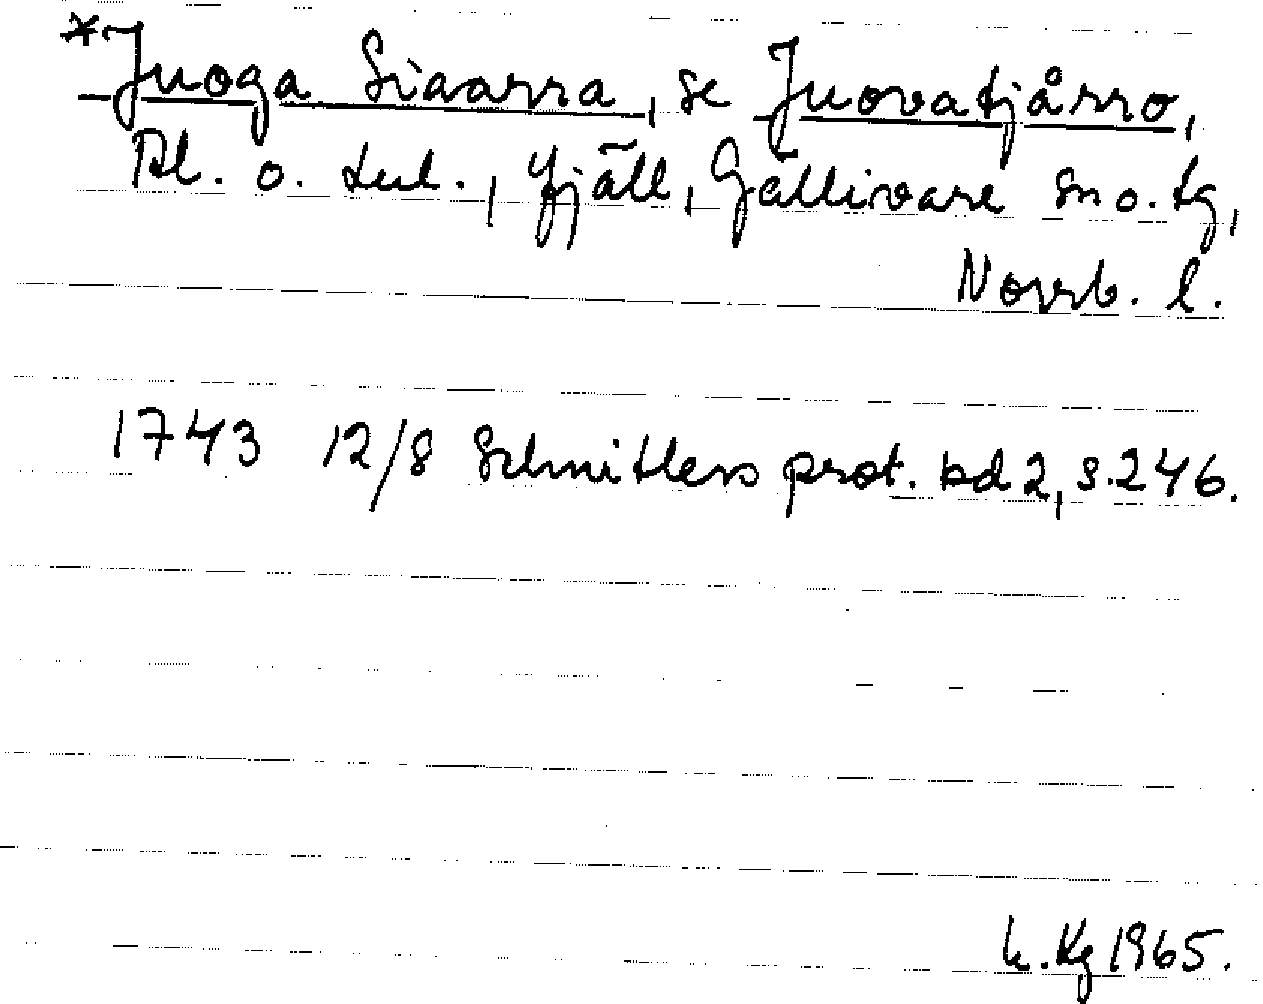 *Juoga Siaarra, se Juovatjårro,
Bl. o. tul., fjäll, Gällivare sn o. tg,
Norrb. l.
1743 12/8 Schnitlers prot. bd 2, s. 246.
K. Kg 1965.